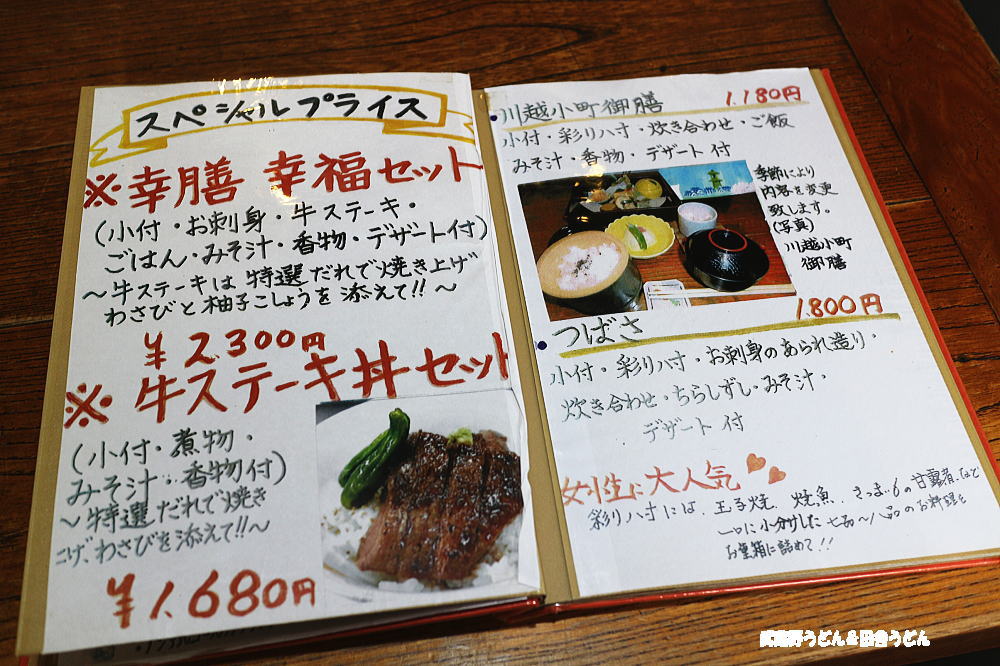 スペシャルプライス
※幸膳 幸福セット
(小付・お刺身・牛ステーキ・
ごはん・みそ汁・香物・デザート付)
～牛ステーキは特選だれで焼き上げ
わさびと柚子こしょうを添えて!!～
¥2,300円
※牛ステーキ丼セット
(小付・煮物・
みそ汁・香物付)
～特選だれで焼き
上げ、わさびを添えて!!～
¥1,680円
川越小町御膳 1,180円
小付・彩り八寸・炊き合わせ・ご飯
みそ汁・香物・デザート付
季節により
内容を変更
致します。
(写真)
川越小町
御膳
1,800円
つばさ
小付・彩り八寸・お刺身のあられ造り・
炊き合わせ・ちらしずし・みそ汁・
デザート付
女性に大人気
彩り八寸には、玉子焼、焼魚、さつま芋の甘露煮、など
一口に小分けした七品～八品のお料理を
お重箱に詰めて!!
武蔵野うどん&田舎うどん